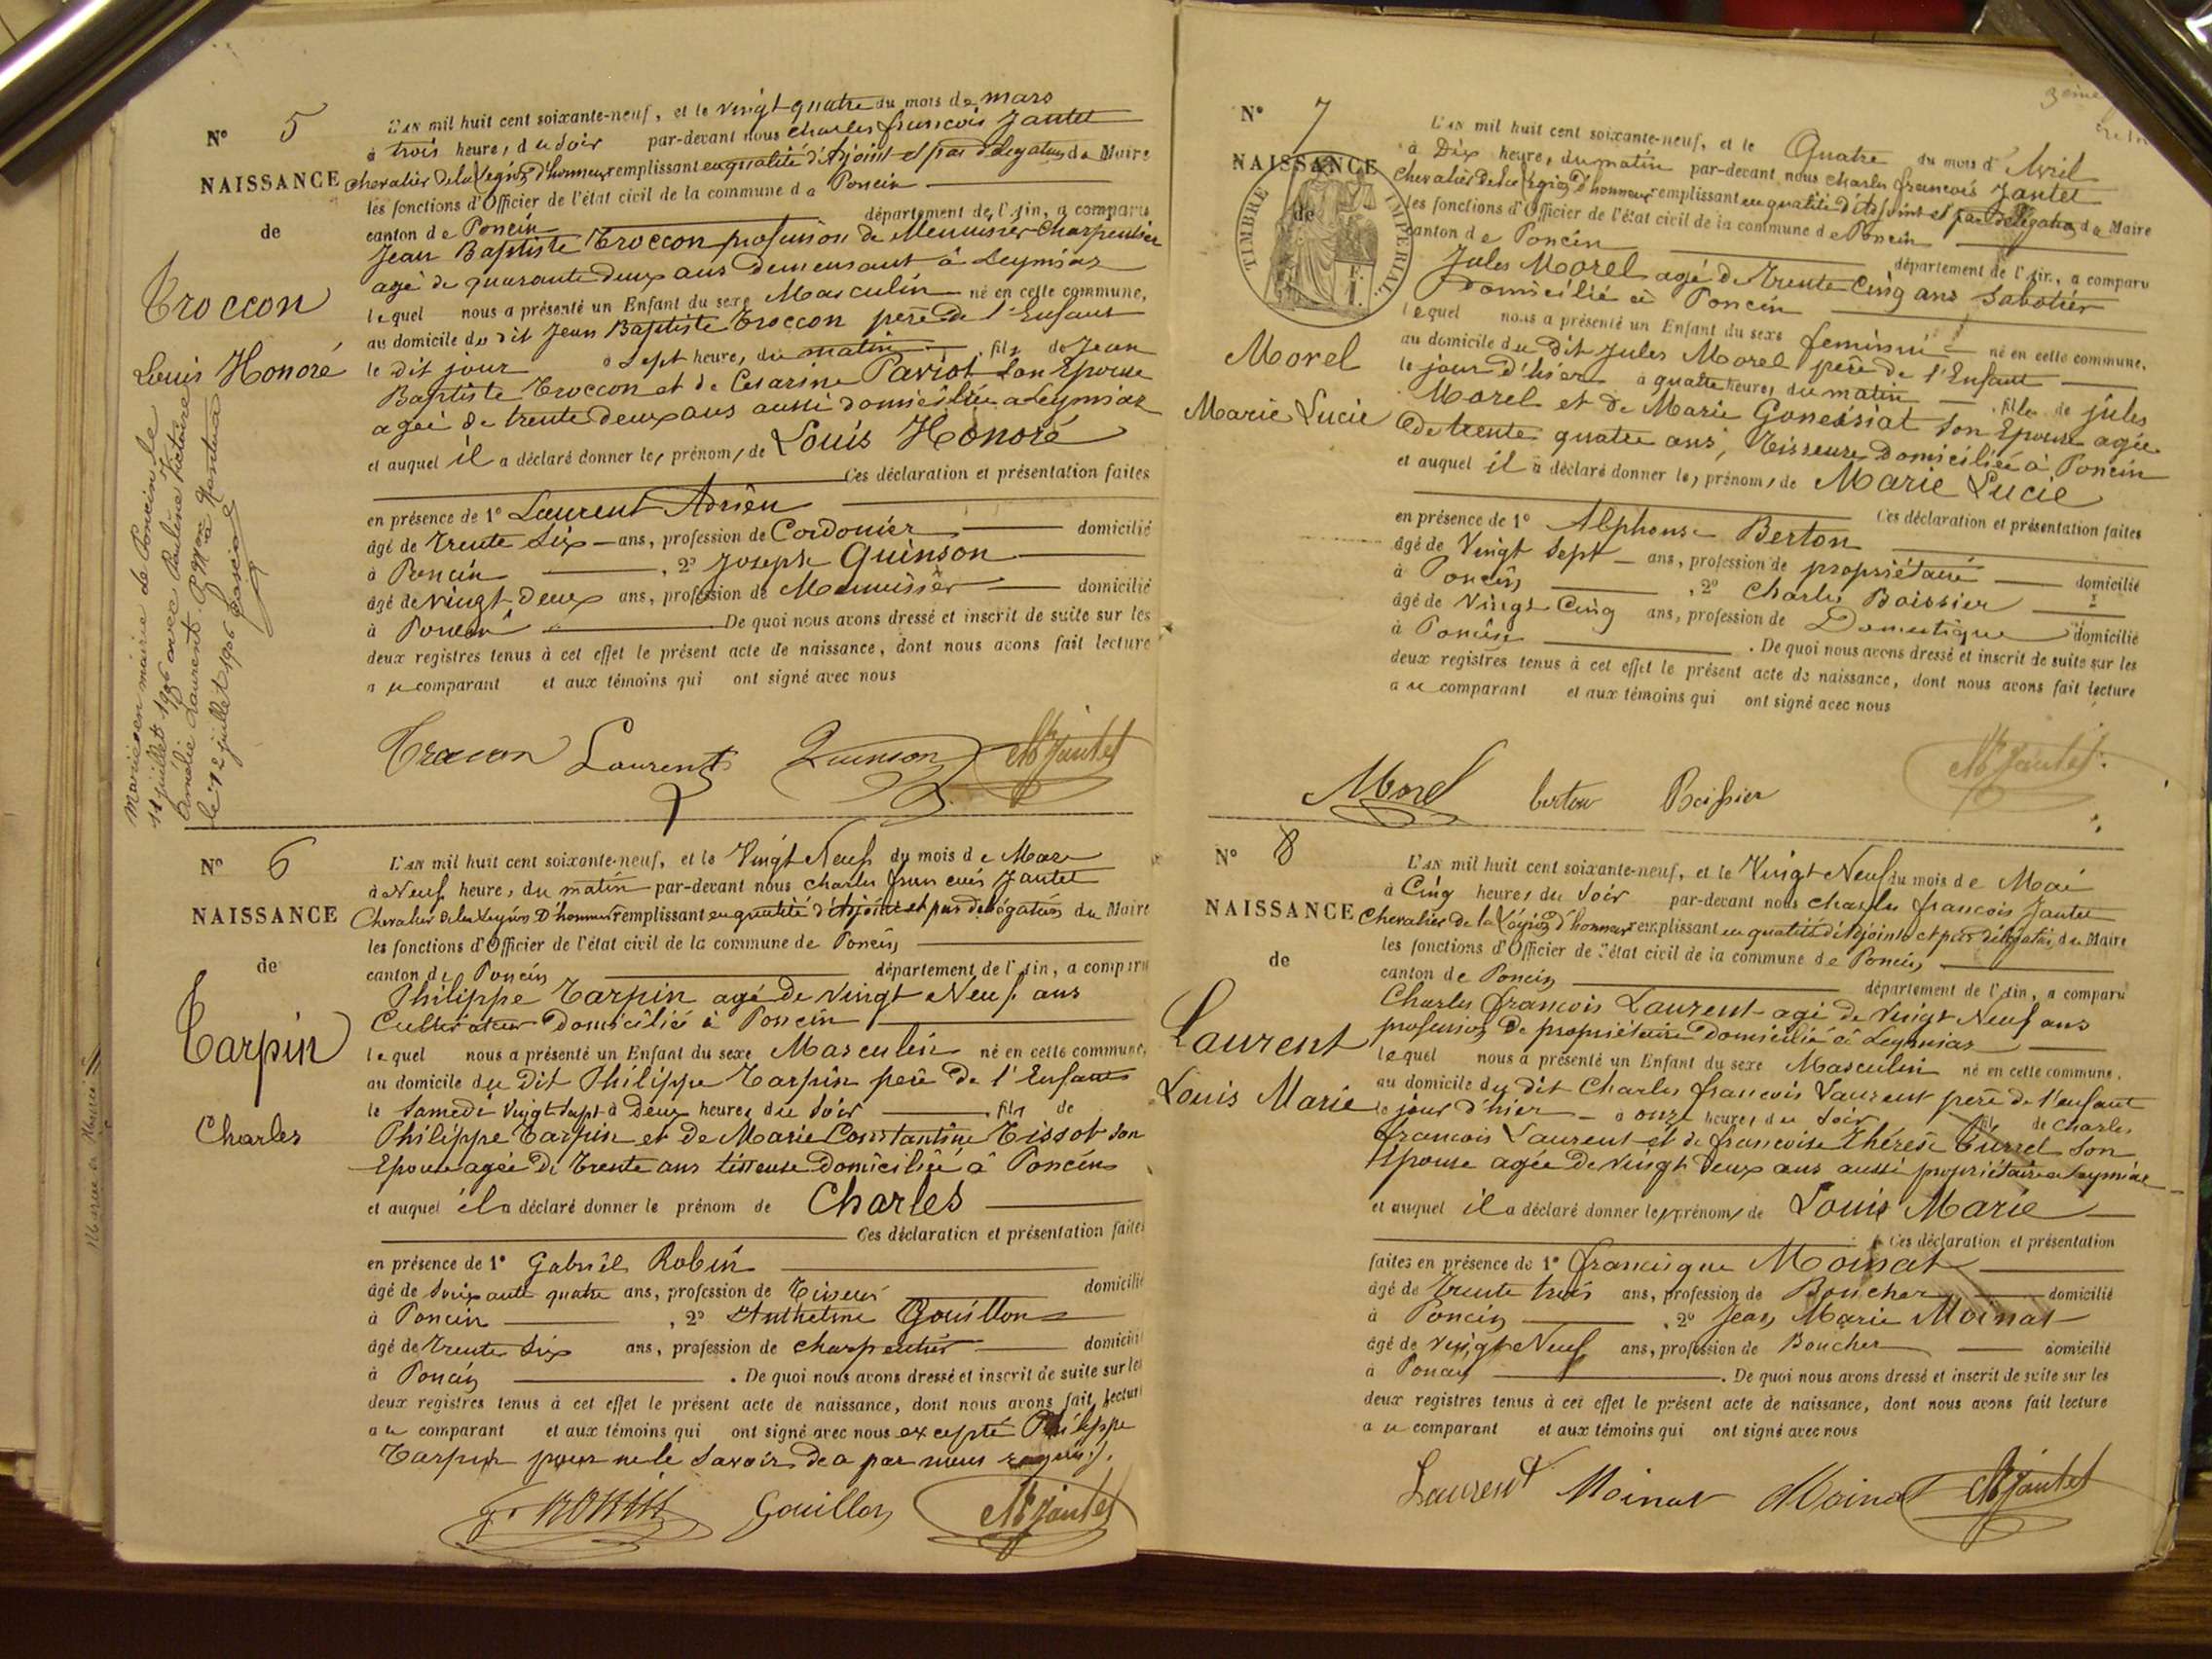 N° 5
NAISSANCE
de
Troccon
Louis Honoré
Marié en mairie de Poncin le
11 juillet 1906 avec Pauline Victoire
Amélie Laurent. P. Mon à Nantua
le 12 juillet 1906
L'AN mil huit cent soixante-neuf, et le vingt quatre du mois de mars
à trois heures du soir par-devant nous charles françois Jantet
chevalier de la Légion d'honneur remplissant en qualité d'Adjoint et par délégation du Maire
les fonctions d'Officier de l'état civil de la commune de Poncin
canton de Poncin département de l'Ain, a comparu
Jean Baptiste Troccon profession de Menuisier Charpentier
agé de quarante deux ans demeurant à Leymiaz
lequel nous a présenté un Enfant du sexe Masculin né en cette commune,
au domicile du dit Jean Baptiste Troccon père de l'Enfant
le dit jour à sept heures du matin fils de Jean
Baptiste Troccon et de Cesarine Paviot son Epouse
agée de trente deux ans aussi domiciliée a Leymiaz
et auquel il a déclaré donner les prénoms de Louis Honoré
Ces déclaration et présentation faites
en présence de 1° Laurent Adrien
âgé de trente six ans, profession de Cordonier domicilié
à Poncin , 2° Joseph Guinson
âgé de vingt deux ans, profession de Menuisier domicilié
à Poncin De quoi nous avons dressé et inscrit de suite sur les
deux registres tenus à cet effet le présent acte de naissance, dont nous avons fait lecture
au comparant et aux témoins qui ont signé avec nous
Troccon Laurent Guinson Jantet
N° 6
NAISSANCE
de
Tarpin
Charles
L'AN mil huit cent soixante-neuf, et le Vingt Neuf du mois de Mars
à Neuf heures du matin par-devant nous charles françois Jantet
Chevalier de la Légion D'honneur remplissant en qualité d'Adjoint et par délégation du Maire
les fonctions d'Officier de l'état civil de la commune de Poncin
canton de Poncin département de l'Ain, a comparu
Philippe Tarpin agé de vingt Neuf ans
Cultivateur domicilié à Poncin
lequel nous a présenté un Enfant du sexe Masculin né en cette commune,
au domicile du Dit Philippe Tarpin père de l'Enfant
le Samedi vingt sept à Deux heures du soir fils de
Philippe Tarpin et de Marie Constantine Tissot son
Epouse agée de trente ans tisseuse domiciliée à Poncin
et auquel il a déclaré donner le prénom de Charles
Ces déclaration et présentation faites
en présence de 1° Gabriel Robin
âgé de soixante quatre ans, profession de Tisseur domicilié
à Poncin , 2° Anthelme Gouillon
âgé de trente six ans, profession de charpentier domicilié
à Poncin . De quoi nous avons dressé et inscrit de suite sur les
deux registres tenus à cet effet le présent acte de naissance, dont nous avons fait lecture
au comparant et aux témoins qui ont signé avec nous excepté Philippe
Tarpin pour ne le savoir de a par nous requis.
Gouillon Jantet
N° 7
NAISSANCE
de
TIMBRE IMPERIAL
Morel
Marie Lucie
L'AN mil huit cent soixante-neuf, et le Quatre du mois d'Avril
à Dix heures du matin par-devant nous charles françois Jantet
Chevalier de la Légion d'honneur remplissant en qualité d'Adjoint et par délégation du Maire
les fonctions d'Officier de l'état civil de la commune de Poncin
canton de Poncin département de l'Ain, a comparu
Jules Morel agé de trente cinq ans sabotier
domicilié à Poncin
lequel nous a présenté un Enfant du sexe feminin né en cette commune,
au domicile du dit Jules Morel père de l'Enfant
le jour d'hier à quatre heures du matin fille de jules
Morel et de Marie Gonessiat son Epouse agée
de trente quatre ans, Tisseuse domiciliée à Poncin
et auquel il a déclaré donner les prénoms de Marie Lucie
Ces déclaration et présentation faites
en présence de 1° Alphonse Berton
âgé de Vingt sept ans, profession de propriétaire domicilié
à Poncin , 2° Charles Boissier
âgé de Vingt Cinq ans, profession de Domestique domicilié
à Poncin . De quoi nous avons dressé et inscrit de suite sur les
deux registres tenus à cet effet le présent acte de naissance, dont nous avons fait lecture
au comparant et aux témoins qui ont signé avec nous
Morel berton Boissier Jantet
N° 8
NAISSANCE
de
Laurent
Louis Marie
L'AN mil huit cent soixante-neuf, et le Vingt Neuf du mois de Mai
à Cinq heures du soir par-devant nous charles françois Jantet
Chevalier de la Légion d'honneur remplissant en qualité d'Adjoint et par délégation du Maire
les fonctions d'Officier de l'état civil de la commune de Poncin
canton de Poncin département de l'Ain, a comparu
Charles françois Laurent agé de Vingt Neuf ans
profession de propriétaire domicilié à Leymiaz
lequel nous a présenté un Enfant du sexe Masculin né en cette commune,
au domicile du dit Charles françois Laurent père de l'enfant
le jour d'hier à onze heures du soir fils de Charles
françois Laurent et de françoise Thérèse Turrel son
Epouse agée de vingt deux ans aussi propriétaire a Leymiaz
et auquel il a déclaré donner les prénoms de Louis Marie
Ces déclaration et présentation
faites en présence de 1° francisque Moinat
âgé de trente trois ans, profession de Boucher domicilié
à Poncin , 2° Jean Marie Moinat
âgé de vingt Neuf ans, profession de Boucher domicilié
à Poncin . De quoi nous avons dressé et inscrit de suite sur les
deux registres tenus à cet effet le présent acte de naissance, dont nous avons fait lecture
au comparant et aux témoins qui ont signé avec nous
Laurent Moinat Moinat Jantet